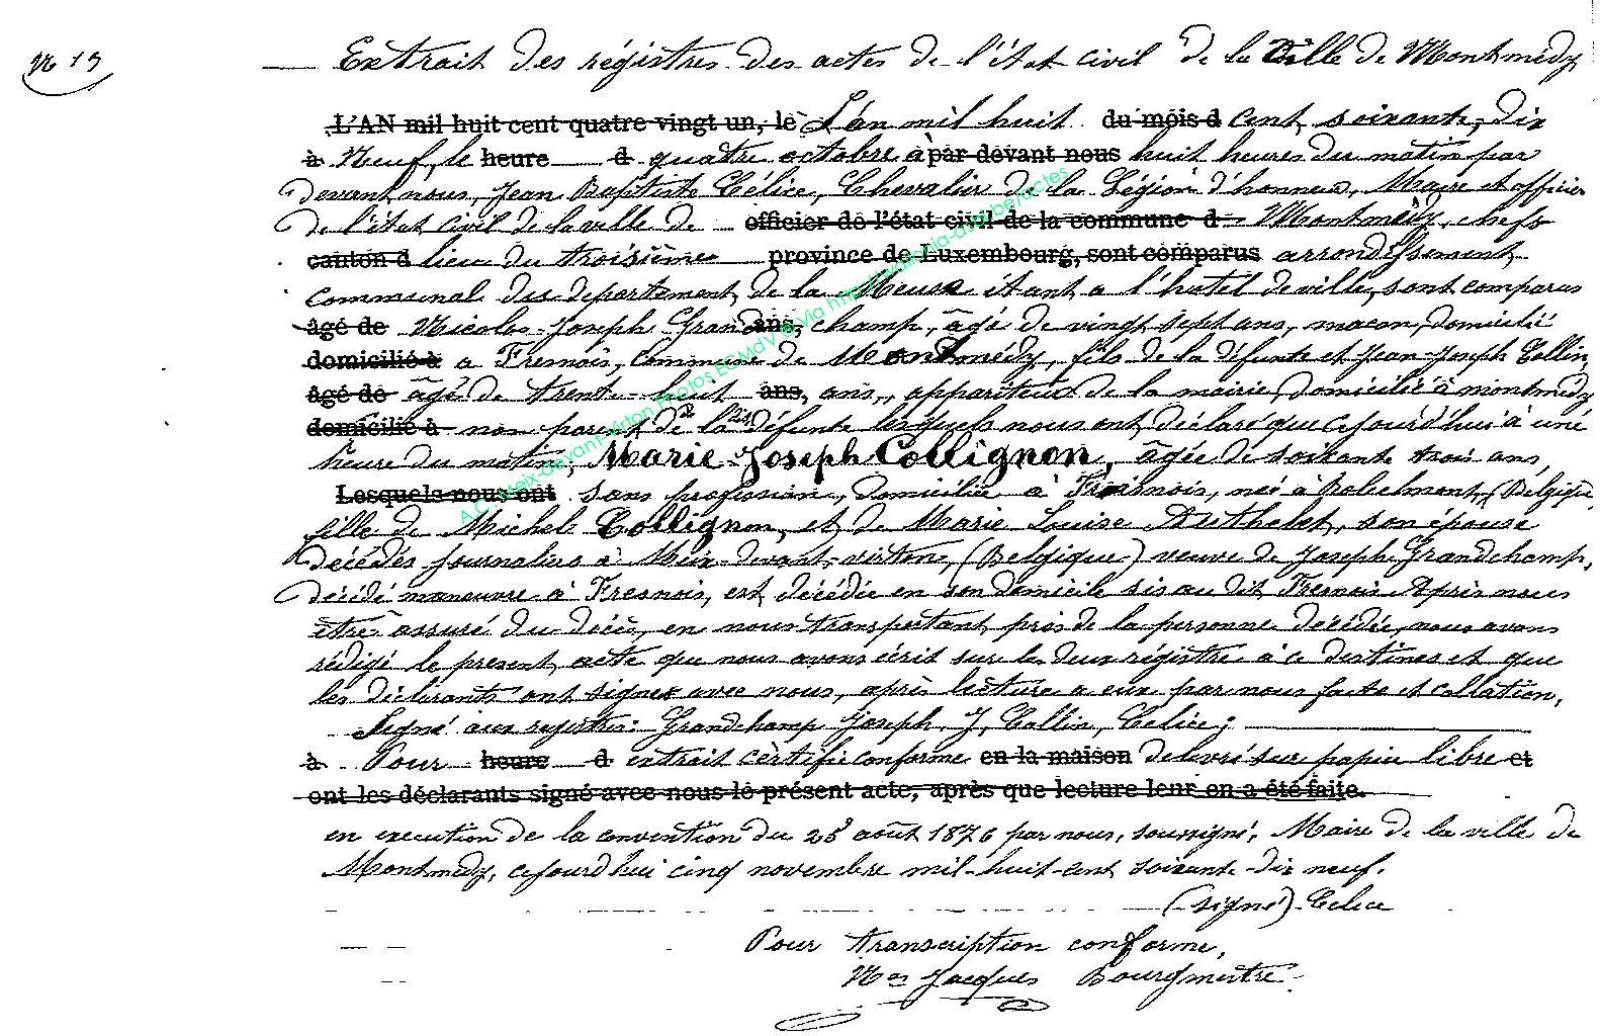 N° 19
Extrait des régistres des actes de l'état civil de la Ville de Montmédy
L'AN mil huit cent quatre vingt un, le L'an mil huit du mois d cent soixante, dix
à Neuf, le heure d quatre octobre à par devant nous huit heures du matin par
devant nous, Jean Baptiste Célice, Chevalier de la Légion d'honneur, Maire et officier
de l'état civil de la ville de officier de l'état civil de la commune d Montmédy, chef
canton d lieu du troisième province de Luxembourg, sont comparus arrondissement
communal du département de la Meuse étant a l'hotel de ville, sont comparus
âgé de Nicolas Joseph Grand ans, champ, âgé de vingt sept ans, maçon, domicilié
domicilié à a Fresnois, commune de Montmédy, fils de la défunte et Jean Joseph Collin,
âgé de âgé de trente huit ans, ans, appariteur de la mairie, domicilié à montmédy
domicilié à non parent de la défunte lesquels nous ont déclaré que cejourd'hui à une
heure du matin, Marie Joseph Collignon, âgée de soixante trois ans,
Lesquels nous ont sans profession, domiciliée à Fresnois, née à (Belgique,
fille de Michel Collignon, et de Marie Louise Authelet, son épouse
décédés journaliers à Meix-devant-virton, (Belgique) veuve de Joseph Grandchamp,
décédé manoeuvre à Fresnois, est décédée en son domicile sis au dit Fresnois Après nous
être assuré du décès, en nous transportant près de la personne décédée, nous avons
rédigé le present acte que nous avons écrit sur les deux régistre à ce destines et que
les déclarants ont signés avec nous, après lecture a eux par nous faite et collation,
Signé aux registres: Grandchamp Joseph, J, Collin, Celice;
à Pour heure d extrait certifié conforme en la maison délivré sur papier libre et
ont les déclarants signé avec nous le présent acte, après que lecture leur en a été faite.
en execution de la convention du 25 août 1876 par nous, soussigné, Maire de la ville de
Montmedy, cejourd'hui cinq novembre mil-huit-cent soixante-dix neuf.
(signé) Celice
Pour transcription conforme,
Jacques Bourgmestre